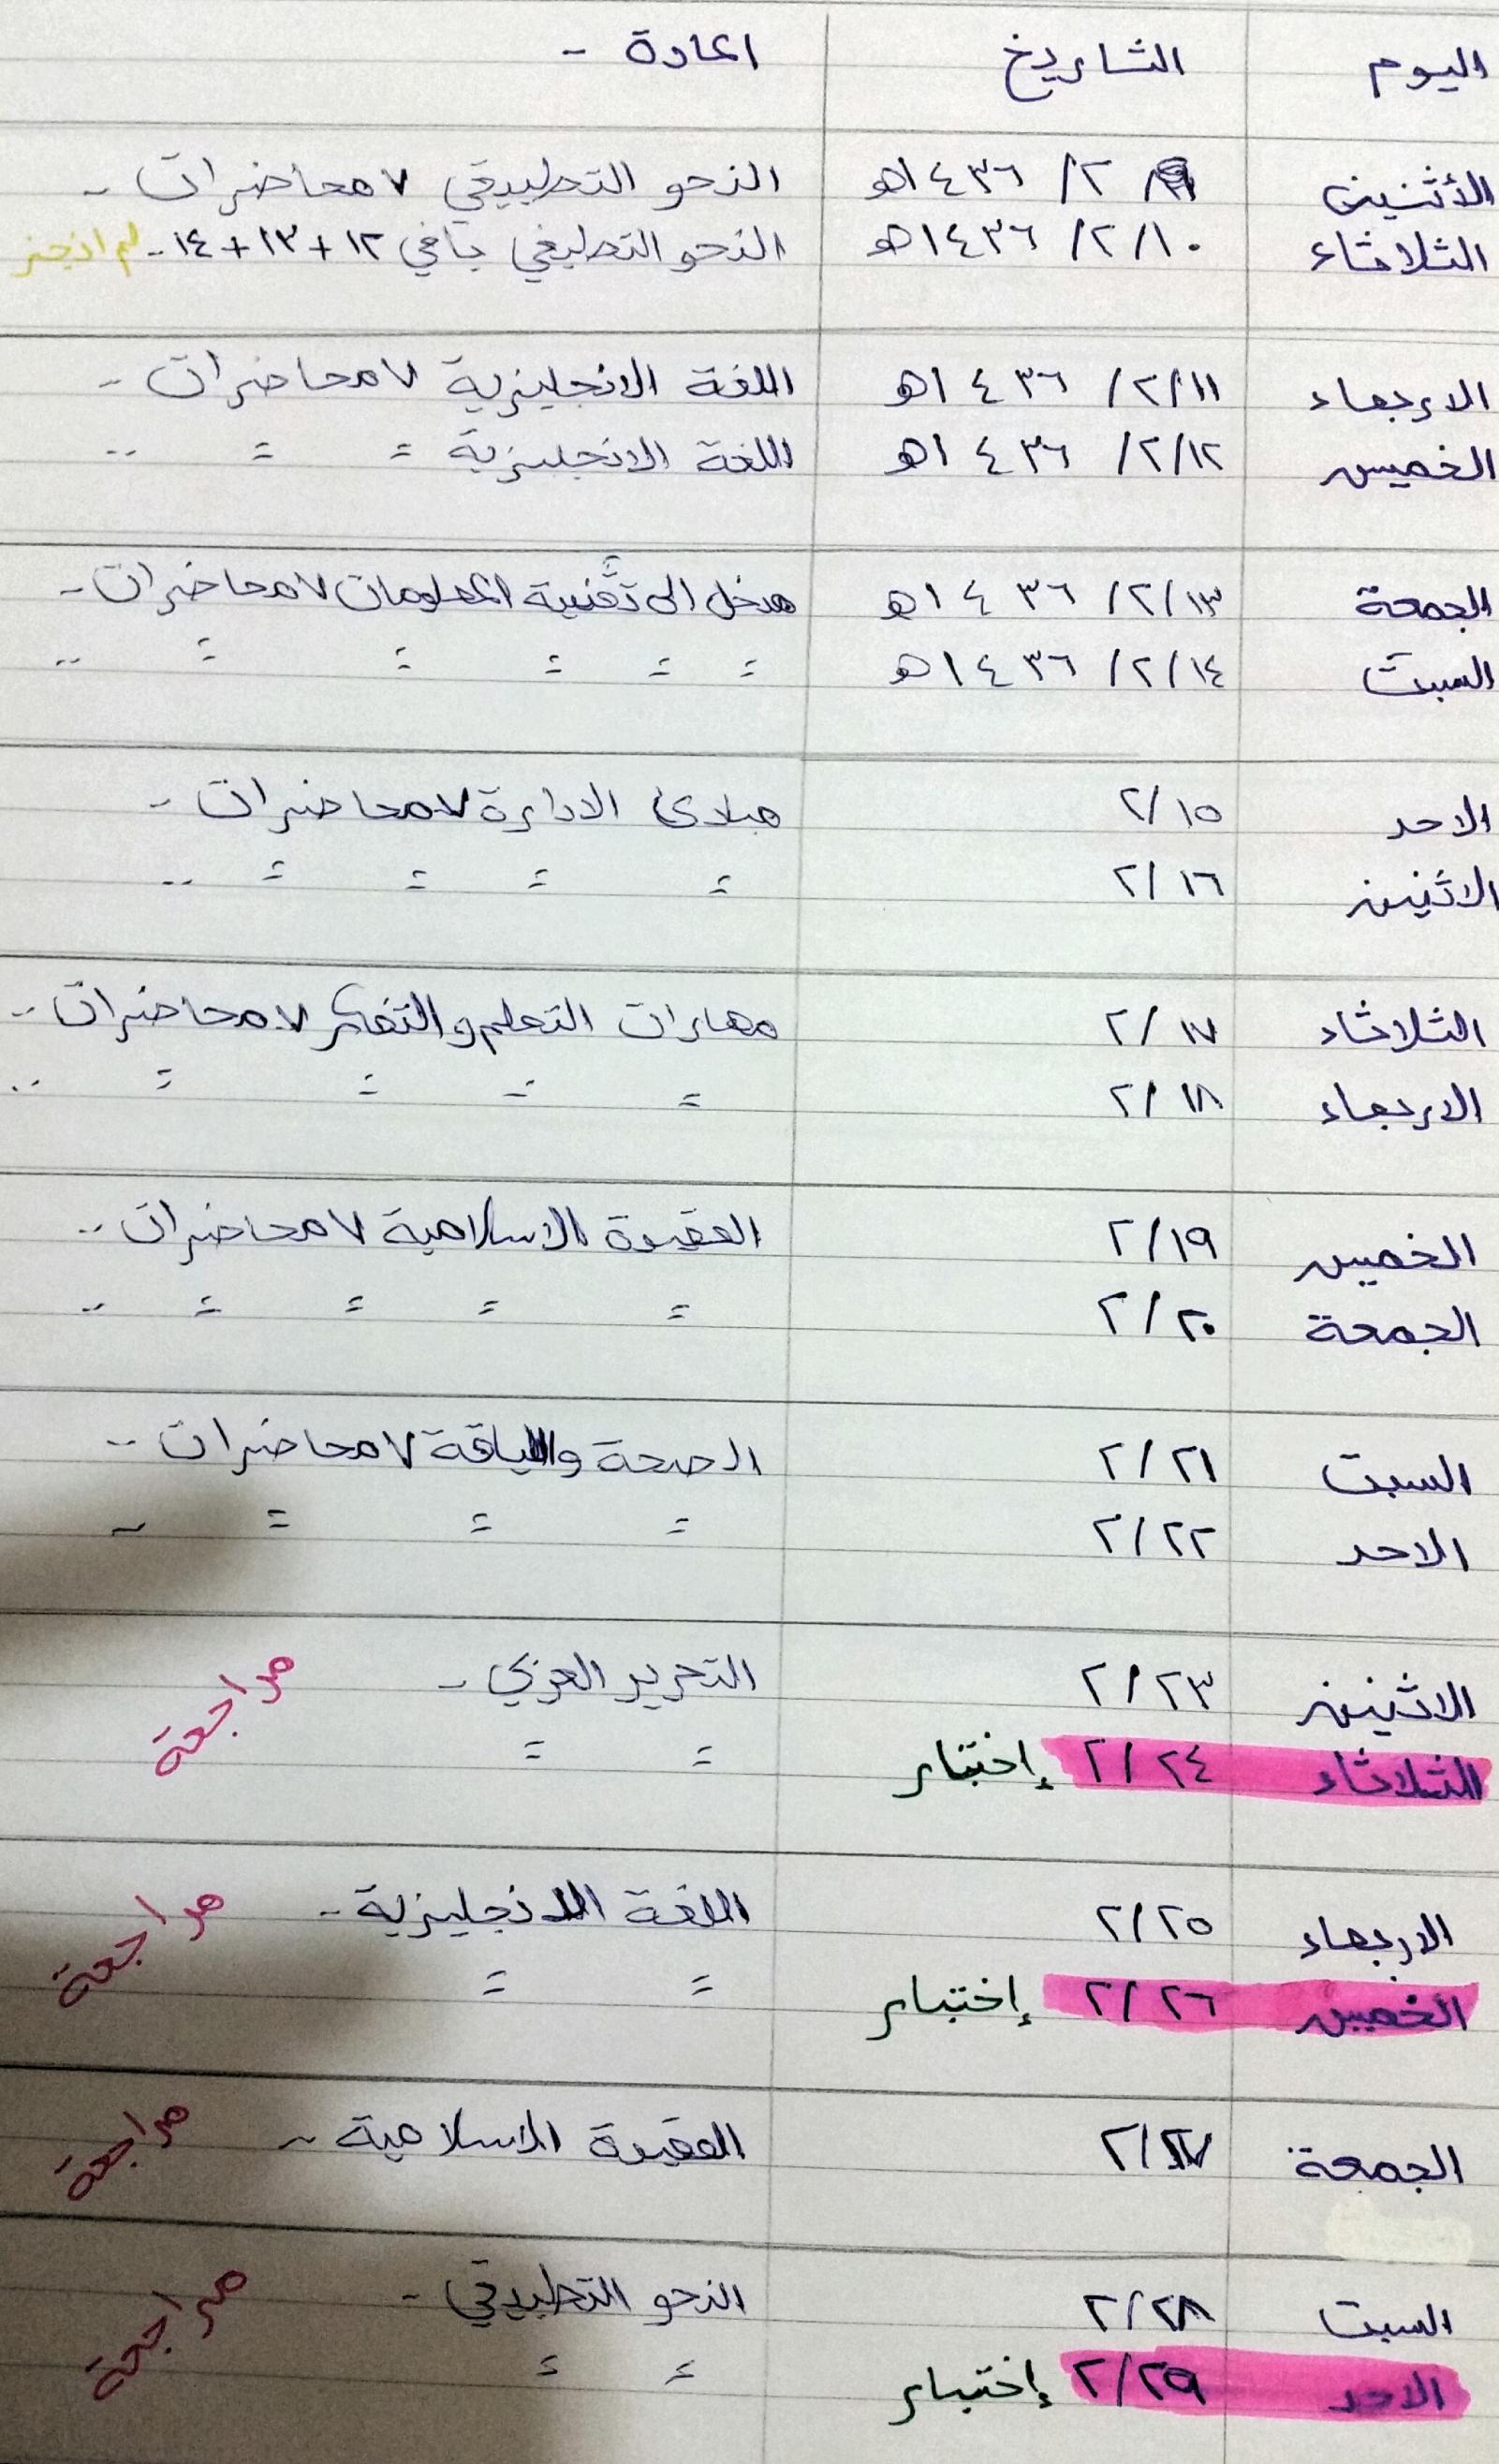 اليوم التاريخ المادة -
الأثنين ٩/ ٢/ ١٤٣٦هـ النحو التطبيقي ٧ محاضرات -
الثلاثاء ١٠/ ٢/ ١٤٣٦هـ النحو التطبيقي باقي ١٢ + ١٣ + ١٤ .. لم انجز
الاربعاء ١١/ ٢/ ١٤٣٦هـ اللغة الانجليزية ٧ محاضرات -
الخميس ١٢/ ٢/ ١٤٣٦هـ اللغة الانجليزية = = ..
الجمعة ١٣/ ٢/ ١٤٣٦هـ مدخل الى تقنية المعلومات ٧ محاضرات -
السبت ١٤/ ٢/ ١٤٣٦هـ = = = = = ..
الاحد ١٥/ ٢ مبادئ الادارة ٧ محاضرات -
الاثنين ١٦/ ٢ = = = = ..
الثلاثاء ١٧/ ٢ مهارات التعلم والتفكير ٧ محاضرات ..
الاربعاء ١٨/ ٢ = = = = ..
الخميس ١٩/ ٢ العقيدة الاسلامية ٧ محاضرات ..
الجمعة ٢٠/ ٢ = = = = ..
السبت ٢١/ ٢ الصحة واللياقة ٧ محاضرات ..
الاحد ٢٢/ ٢ = = = ..
الاثنين ٢٣/ ٢ التحرير العربي - مراجعة
الثلاثاء ٢٤/ ٢ إختبار = =
الاربعاء ٢٥/ ٢ اللغة الانجليزية - مراجعة
الخميس ٢٦/ ٢ إختبار = =
الجمعة ٢٧/ ٢ العقيدة الاسلامية ~ مراجعة
السبت ٢٨/ ٢ النحو التطبيقي - مراجعة
الاحد ٢٩/ ٢ إختبار = =